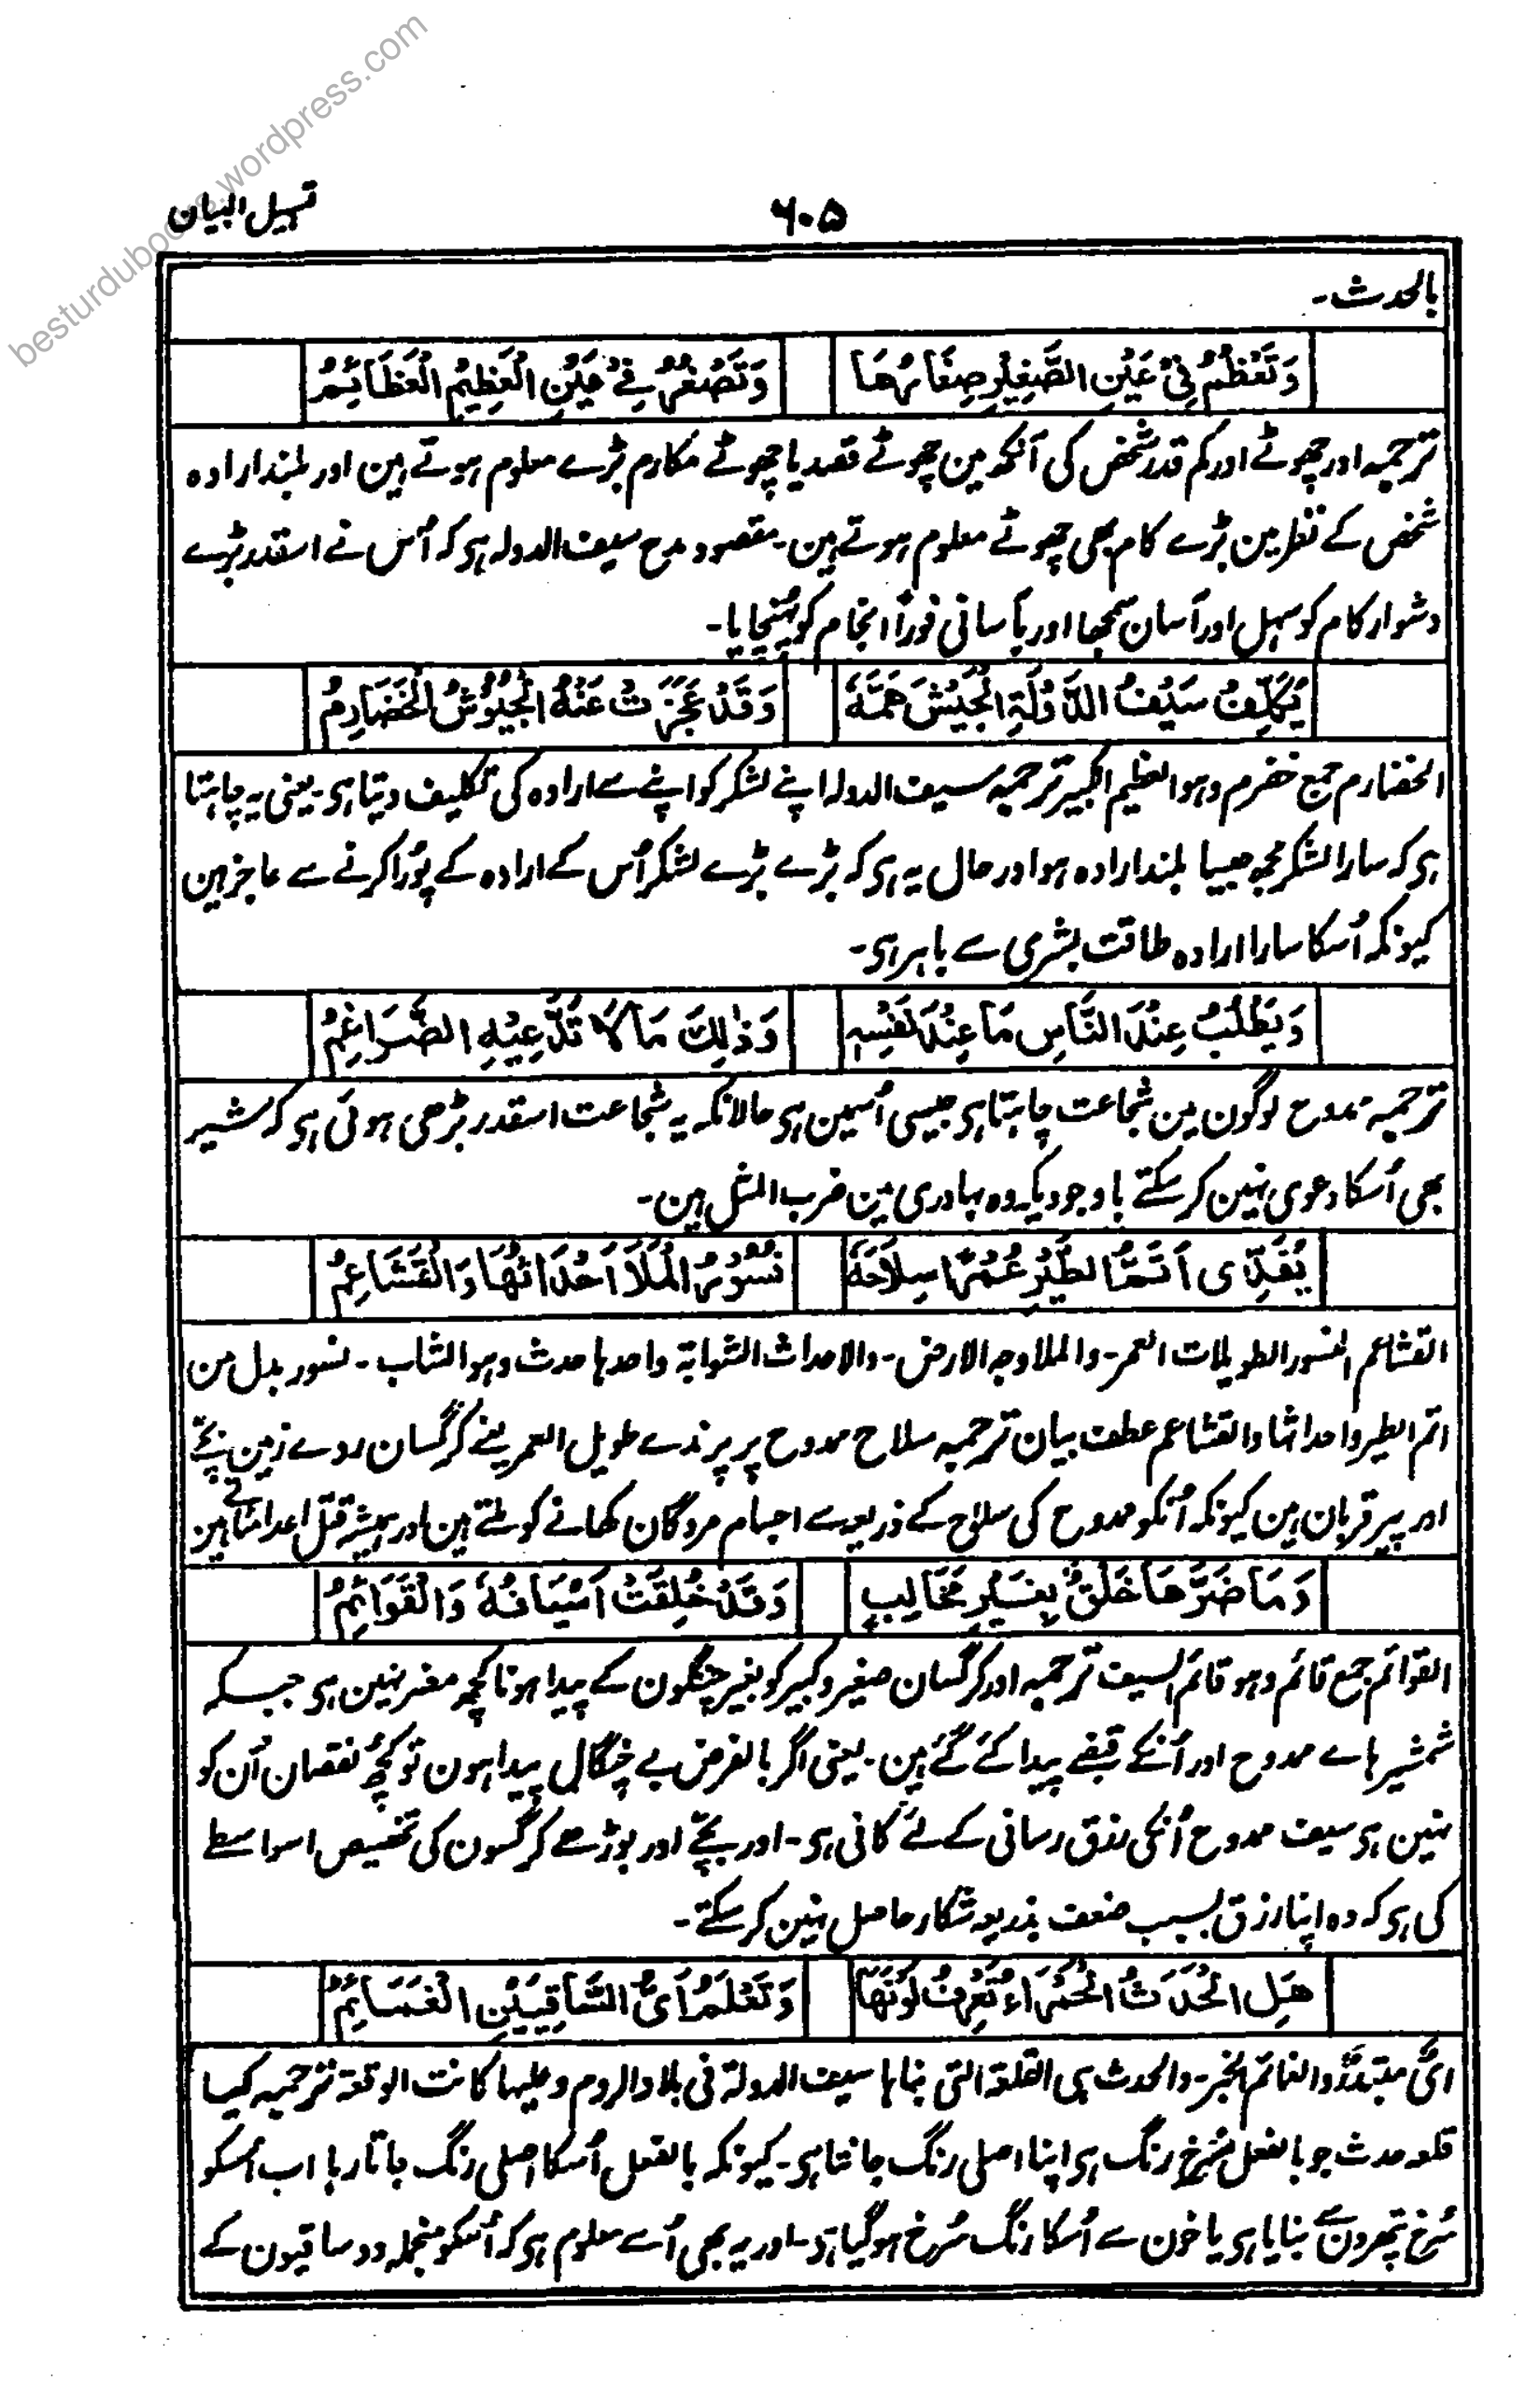 besturdubooks.wordpress.com
تسہیل البیان
۶۰۵
بالحدث۔
وَتَعْظُمُ فِيْ عَيْنِ الصَّغِيْرِ صِغَارُهَا وَتَصْغُرُ فِيْ عَيْنِ الْعَظِيْمِ الْعَظَائِمُ
ترجمہ اور چھوٹے اور کم قدر شخص کی آنکھ مین چھوٹے قصد یا چھوٹے مکارم بڑے معلوم ہوتے ہین اور بلند ارادہ
شخص کے نظر مین بڑے کام بھی چھوٹے معلوم ہوتے ہین۔ مقصود مدح سیف الدولہ ہی کہ اُس نے اسقدر بڑے
دشوار کام کو سہل اور آسان سمجھا اور بآسانی فوراً انجام کو پہُنچایا۔
يُكَلِّفُ سَيْفُ الدَّوْلَةِ الْجَيْشَ هَمَّهٗ وَقَدْ عَجَزَتْ عَنْهُ الْجُيُوْشُ الْخَضَارِمُ
الخضارم جمع خضرم وہو العظیم الکبیر ترجمہ سیف الدولہ اپنے لشکر کو اپنے سے ارادہ کی تکلیف دیتا ہی۔ یعنی یہ چاہتا
ہی کہ سارا لشکر مجھ جیسا بلند ارادہ ہو اور حال یہ ہی کہ بڑے بڑے لشکر اُس کے ارادہ کے پُورا کرنے سے عاجز ہین
کیونکہ اُسکا سارا ارادہ طاقت بشری سے باہر ہی۔
وَيَطْلُبُ عِنْدَ النَّاسِ مَا عِنْدَ نَفْسِهٖ وَذٰلِكَ مَا لَا تَدَّعِيْهِ الضَّرَاغِمُ
ترجمہ ممدوح لوگون مین شجاعت چاہتا ہی جیسی اُسمین ہی حالانکہ یہ شجاعت اسقدر بڑھی ہوئی ہی کہ شیر
بھی اُسکا دعوی نہین کر سکتے باوجودیکہ وہ بہادری مین ضرب المثل ہین۔
يُفَدِّى اَتَمُّ الطَّيْرِ عُمْرًا سِلَاحَهٗ نُسُوْرُ الْمَلَا اَحْدَاثُهَا وَالْقَشَاعِمُ
القشاعم النسور الطویلات العمر۔ والملا وجہ الارض۔ والاحداث الشوابۃ واحدہا حدث وہو الشاب۔ نسور بدل من
اتم الطیر واحداثہا والقشاعم عطف بیان ترجمہ سلاح ممدوح پر پرندے طویل العمر یعنے کرگسان روے زمین بچّے
اور پیر قربان ہین کیونکہ اُنکو ممدوح کی سلاح کے ذریعہ سے اجسام مردگان کھانے کو ملتے ہین اور ہمیشہ قتل اعدا مناتے ہین
وَمَا ضَرَّهَا خَلْقٌ بِغَيْرِ مَخَالِبٍ وَقَدْ خُلِقَتْ اَسْيَافُهٗ وَالْقَوَائِمُ
القوائم جمع قائم وہو قائم السیف ترجمہ اور کرگسان صغیر و کبیر کو بغیر چنگلون کے پیدا ہونا کچھ مضر نہین ہی جبکہ
شمشیر ہاے ممدوح اور اُنکے قبضے پیدا کئے گئے ہین۔ یعنی اگر بالفرض بے چنگال پیدا ہون تو کچُھ نقصان اُن کو
نہین ہی سیف ممدوح اُنکی رزق رسانی کے لئے کافی ہی۔ اور بچّے اور بوڑھے کرگسون کی تخصیص اسواسطے
کی ہی کہ وہ اپنا رزق بسبب ضعف بذریعہ شکار حاصل نہین کر سکتے۔
هَلِ الْحَدَثُ الْحَمْرَاءُ تَعْرِفُ لَوْنَهَا وَتَعْلَمُ اَيُّ السَّاقِيَيْنِ الْغَمَائِمُ
ایُّ مبتدأ والغائم الخبر۔ والحدث ہی القلعۃ التی بناہا سیف الدولۃ فی بلاد الروم وعلیہا کانت الوقعۃ ترجمہ کیا
قلعہ حدث جو بالفعل سُرخ رنگ ہی اپنا اصلی رنگ جانتا ہی۔ کیونکہ بالفعل اُسکا اصلی رنگ جاتا رہا اب اُسکو
سُرخ پتھرون سے بنایا ہی یا خون سے اُسکا رنگ سُرخ ہو گیا ہی۔ اور یہ بھی اُسے معلوم ہی کہ اُسکو منجملہ دو ساقیون کے